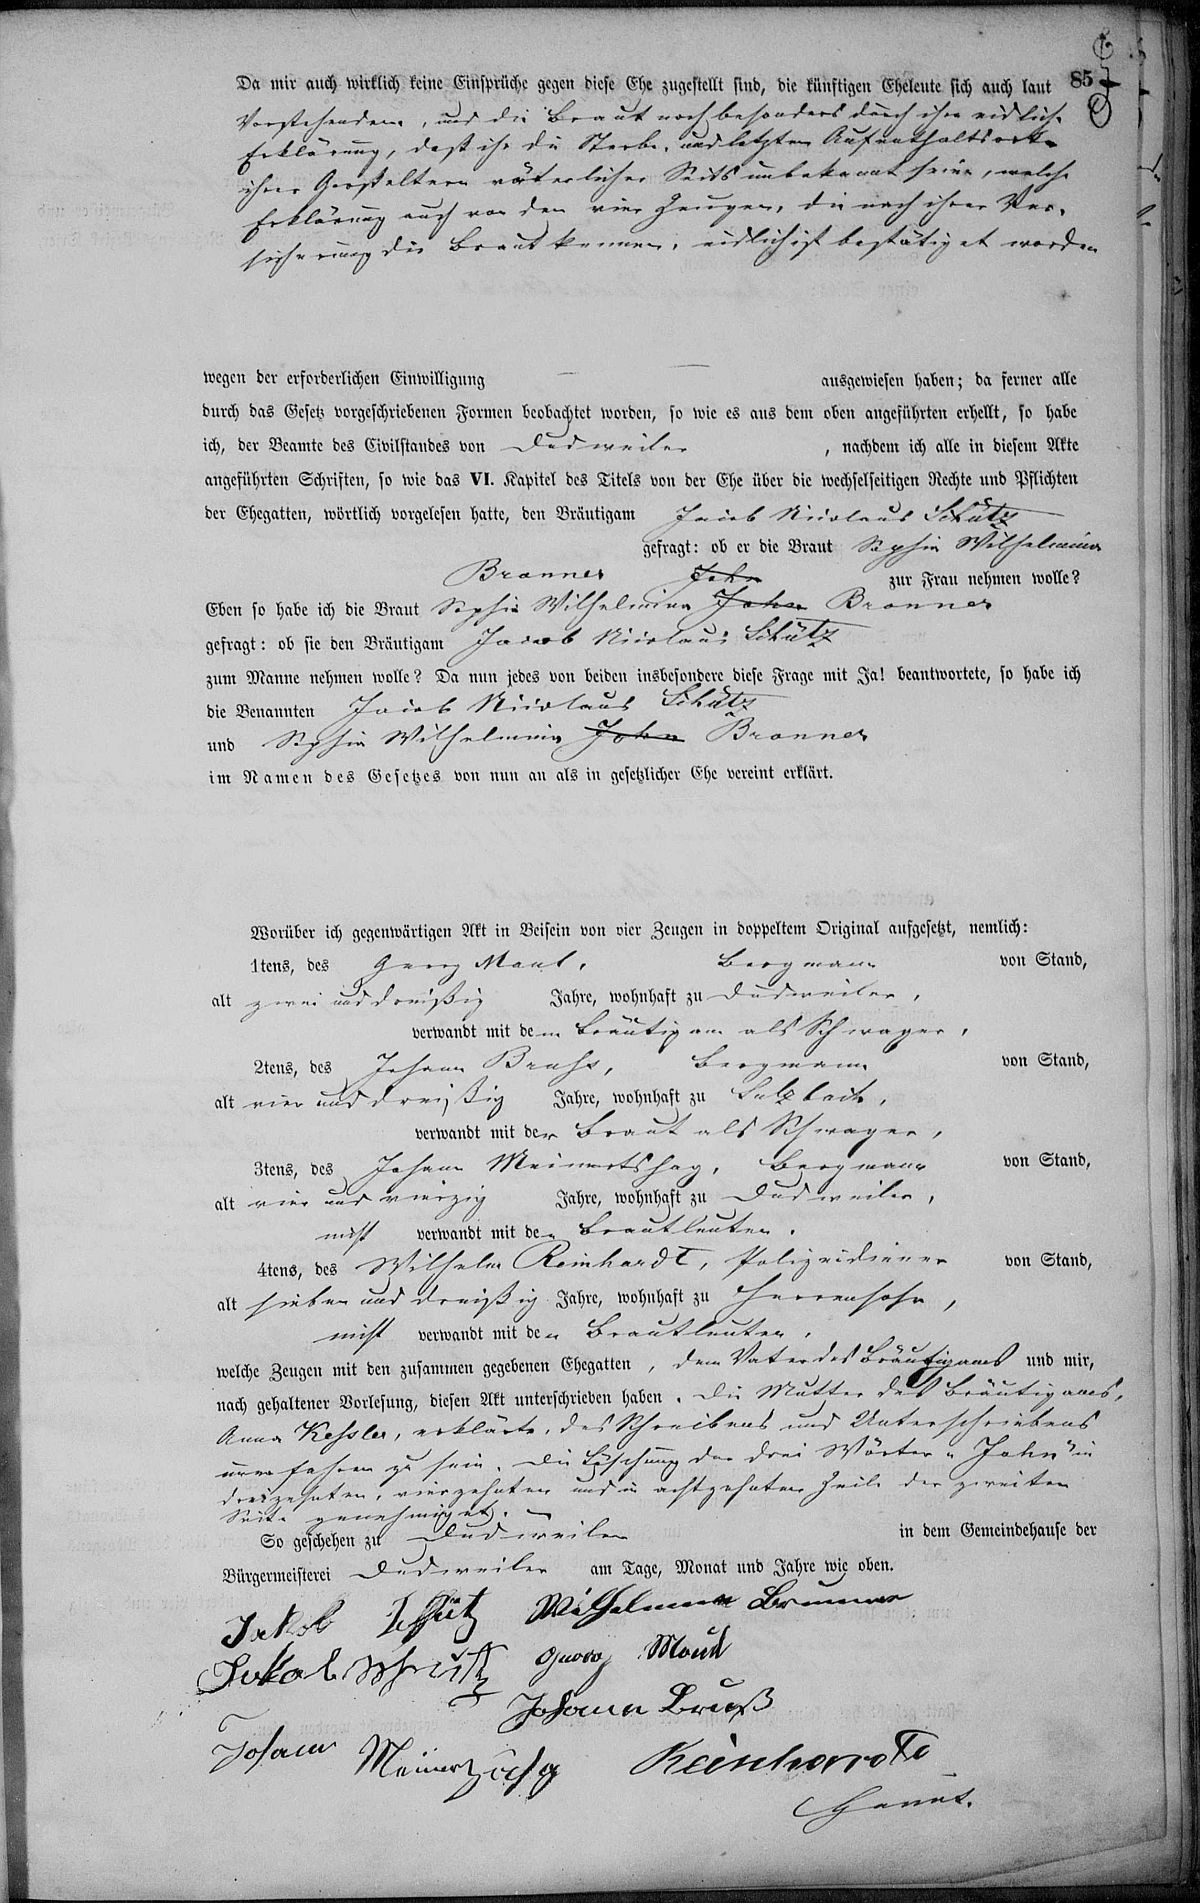 85
Da mir auch wirklich keine Einsprüche gegen diese Ehe zugestellt sind, die künftigen Eheleute sich auch laut
Vorstehendem, und die Braut noch besonders durch ihre eidliche
Erklärung, daß ihr die Sterbe- und letzten Aufenthaltsorte
ihrer Großeltern väterlicher Seits unbekannt seien, welche
Erklärung auch von den vier Zeugen, die nach ihrer Ver-
sicherung die Braut kennen, eidlich ist bestätiget worden
wegen der erforderlichen Einwilligung — — ausgewiesen haben; da ferner alle
durch das Gesetz vorgeschriebenen Formen beobachtet worden, so wie es aus dem oben angeführten erhellt, so habe
ich, der Beamte des Civilstandes von Dudweiler , nachdem ich alle in diesem Akte
angeführten Schriften, so wie das VI. Kapitel des Titels von der Ehe über die wechselseitigen Rechte und Pflichten
der Ehegatten, wörtlich vorgelesen hatte, den Bräutigam Jacob Nicolaus Schütz
gefragt: ob er die Braut Sophia Wilhelmina
Bronner John zur Frau nehmen wolle?
Eben so habe ich die Braut Sophia Wilhelmina John Bronner
gefragt: ob sie den Bräutigam Jacob Nicolaus Schütz
zum Manne nehmen wolle? Da nun jedes von beiden insbesondere diese Frage mit Ja! beantwortete, so habe ich
die Benannten Jacob Nicolaus Schütz
und Sophia Wilhelmina John Bronner
im Namen des Gesetzes von nun an als in gesetzlicher Ehe vereint erklärt.
Worüber ich gegenwärtigen Akt in Beisein von vier Zeugen in doppeltem Original aufgesetzt, nemlich:
1tens, des Georg Maul, Bergmann von Stand,
alt zwei und dreißig Jahre, wohnhaft zu Dudweiler,
verwandt mit dem Bräutigam als Schwager,
2tens, des Johann Bruhs, Bergmann von Stand,
alt vier und dreißig Jahre, wohnhaft zu Sulzbach,
verwandt mit der Braut als Schwager,
3tens, des Johann Meinertshag, Bergmann von Stand,
alt vier und vierzig Jahre, wohnhaft zu Dudweiler,
nicht verwandt mit den Brautleuten,
4tens, des Wilhelm Reinhardt, Polizeidiener von Stand,
alt sieben und dreißig Jahre, wohnhaft zu Herrensohr,
nicht verwandt mit den Brautleuten,
welche Zeugen mit den zusammen gegebenen Ehegatten, dem Vater des Bräutigams und mir,
nach gehaltener Vorlesung, diesen Akt unterschrieben haben. Die Mutter des Bräutigams,
Anna Kessler, erklärte, des Schreibens und Unterschreibens
unerfahren zu sein. Die Löschung der drei Wörter "John" in
dreizehnten, vierzehnten und in achtzehnter Zeile der zweiten
Seite genehmiget.
So geschehen zu Dudweiler in dem Gemeindehause der
Bürgermeisterei Dudweiler am Tage, Monat und Jahre wie oben.
Jakob Schütz Wilhelmina Brunner
Jakob Schütz Georg Maul
Johann Bruß
Johann Reinhardt